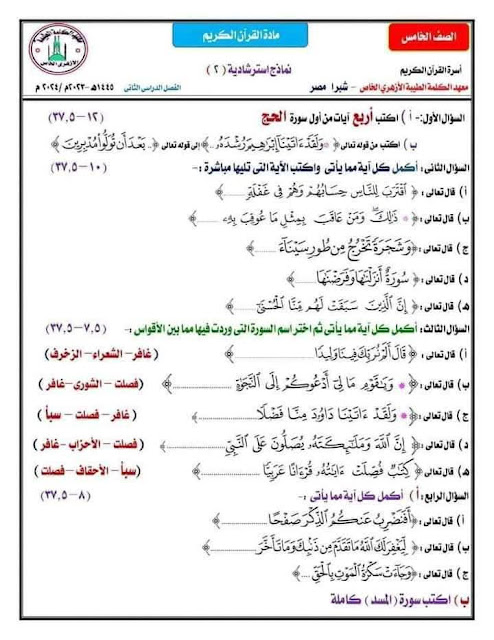 الصف الخامس
مادة القرآن الكريم
أسرة القرآن الكريم
نماذج استرشادية ( ٢ )
معهد الكلمة الطيبة الأزهري الخاص – شبرا مصر
الفصل الدراسى الثانى
١٤٤٥هـ -٢٠٢٣م /٢٠٢٤ م
السؤال الأول:- أ ) اكتب أربع آيات من أول سورة الحج (١٢-٣٧.٥)
ب ) اكتب من قوله تعالى ﴿ وَلَقَدْ ءَاتَيْنَآ إِبْرَٰهِيمَ رُشْدَهُۥ ..﴾ إلى قوله تعالى ﴿.. بَعْدَ أَن تُوَلُّوا۟ مُدْبِرِينَ﴾
السؤال الثانى: أكمل كل آية مما يأتى واكتب الآية التى تليها مباشرة :- (١٠-٣٧.٥)
أ) قال تعالى :﴿ ٱقْتَرَبَ لِلنَّاسِ حِسَابُهُمْ وَهُمْ فِى غَفْلَةٍ ..........﴾
ب) قال تعالى :﴿ ذَٰلِكَ وَمَنْ عَاقَبَ بِمِثْلِ مَا عُوقِبَ بِهِۦ ........﴾
ج ) قال تعالى :﴿وَشَجَرَةً تَخْرُجُ مِن طُورِ سَيْنَآءَ ..........﴾
د ) قال تعالى :﴿ سُورَةٌ أَنزَلْنَٰهَا وَفَرَضْنَٰهَا ..........﴾
هـ) قال تعالى :﴿ إِنَّ ٱلَّذِينَ سَبَقَتْ لَهُم مِّنَّا ٱلْحُسْنَىٰٓ ..........﴾
السؤال الثالث: أكمل كل آية مما يأتى ثم اختر اسم السورة التى وردت فيها مما بين الأقواس :- (٧.٥-٣٧.٥)
أ ) قال تعالى :﴿ قَالَ أَلَمْ نُرَبِّكَ فِينَا وَلِيدًا ..........﴾ (غافر – الشعراء- الزخرف)
ب) قال تعالى :﴿ وَيَٰقَوْمِ مَا لِىٓ أَدْعُوكُمْ إِلَى ٱلنَّجَوٰةِ ..........﴾ (فصلت – الشورى- غافر )
ج ) قال تعالى :﴿ وَلَقَدْ ءَاتَيْنَا دَاوُۥدَ مِنَّا فَضْلًا ..........﴾ (غافر – فصلت – سبأ )
د ) قال تعالى :﴿ إِنَّ ٱللَّهَ وَمَلَٰٓئِكَتَهُۥ يُصَلُّونَ عَلَى ٱلنَّبِىِّ ..........﴾ (فصلت – الأحزاب -غافر )
هـ) قال تعالى :﴿ كِتَٰبٌ فُصِّلَتْ ءَايَٰتُهُۥ قُرْءَانًا عَرَبِيًّا ..........﴾ (سبأ – الأحقاف- فصلت )
السؤال الرابع: أ ) أكمل كل آية مما يأتى :- (٨-٣٧.٥)
أ ) قال تعالى :﴿ أَفَنَضْرِبُ عَنكُمُ ٱلذِّكْرَ صَفْحًا ..........﴾
ب) قال تعالى :﴿ لِّيَغْفِرَ لَكَ ٱللَّهُ مَا تَقَدَّمَ مِن ذَنۢبِكَ وَمَا تَأَخَّرَ ..........﴾
ج ) قال تعالى :﴿ وَجَآءَتْ سَكْرَةُ ٱلْمَوْتِ بِٱلْحَقِّ ....﴾
ب ) اكتب سورة ( المسد ) كاملة